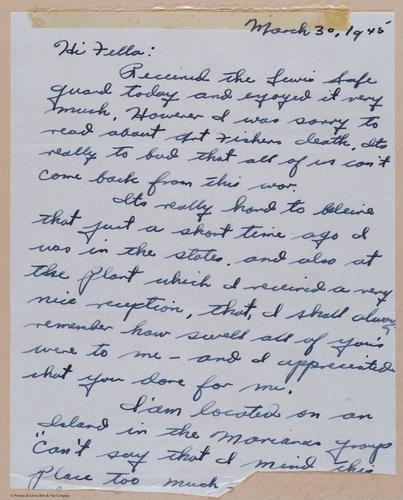 March 30, 1945
Hi Fella:
Received the Lewis Safe
guard today and enjoyed it very
much. However I was sorry to
read about Art Fishers death. Its
really to bad that all of us can't
come back from this war.
Its really hard to believe
that just a short time ago I
was in the states, and also at
the plant which I received a very
nice reception, that, I shall always
remember how swell all of you's
were to me - and I appreciated
what you done for me.
I am located on an
Island in the Marianas group
"Can't say that I mind this
place too much